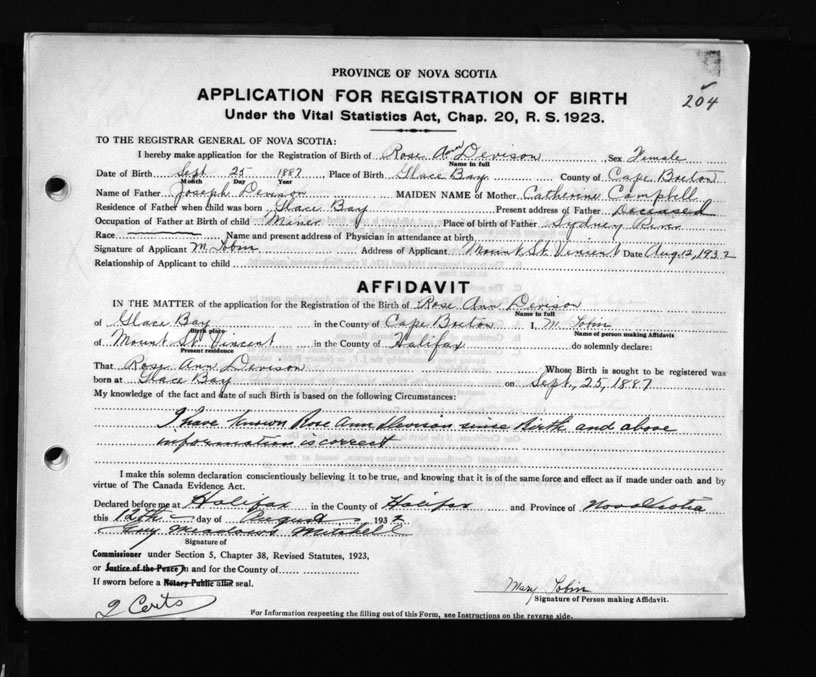 PROVINCE OF NOVA SCOTIA
APPLICATION FOR REGISTRATION OF BIRTH
204
Under the Vital Statistics Act, Chap. 20, R. S. 1923.
TO THE REGISTRAR GENERAL OF NOVA SCOTIA:
I hereby make application for the Registration of Birth of Rose Ann Devison, Sex Female
Name in full
Date of Birth Sept 25 1887, Place of Birth Glace Bay County of Cape Breton
Month Day Year
Name of Father Joseph Devison MAIDEN NAME of Mother Catherine Campbell
Residence of Father when child was born Glace Bay Present address of Father Deceased
Occupation of Father at Birth of child Miner Place of birth of Father Sydney River
Race Name and present address of Physician in attendance at birth
Signature of Applicant M. Tobin Address of Applicant Mount St. Vincent Date Aug 12, 1932
Relationship of Applicant to child
AFFIDAVIT
IN THE MATTER of the application for the Registration of the Birth of Rose Ann Devison
Name in full
of Glace Bay in the County of Cape Breton I, M. Tobin
Birth place Name of person making Affidavit
of Mount St. Vincent in the County of Halifax do solemnly declare:
Present residence
That Rose Ann Devison Whose Birth is sought to be registered was
born at Glace Bay on Sept, 25, 1887
My knowledge of the fact and date of such Birth is based on the following Circumstances:
I have known Rose Ann Devison since Birth and above
information is correct
I make this solemn declaration conscientiously believing it to be true, and knowing that it is of the same force and effect as if made under oath and by
virtue of The Canada Evidence Act.
Declared before me at Halifax in the County of Halifax and Province of Nova Scotia
this 12th day of August 1932
Guy Meadows Mitchell
Signature of
Commissioner under Section 5, Chapter 38, Revised Statutes, 1923,
or Justice of the Peace in and for the County of
If sworn before a Notary Public affix seal.
Mary Tobin
Signature of Person making Affidavit.
2 Certs
For Information respecting the filling out of this Form, see Instructions on the reverse side.